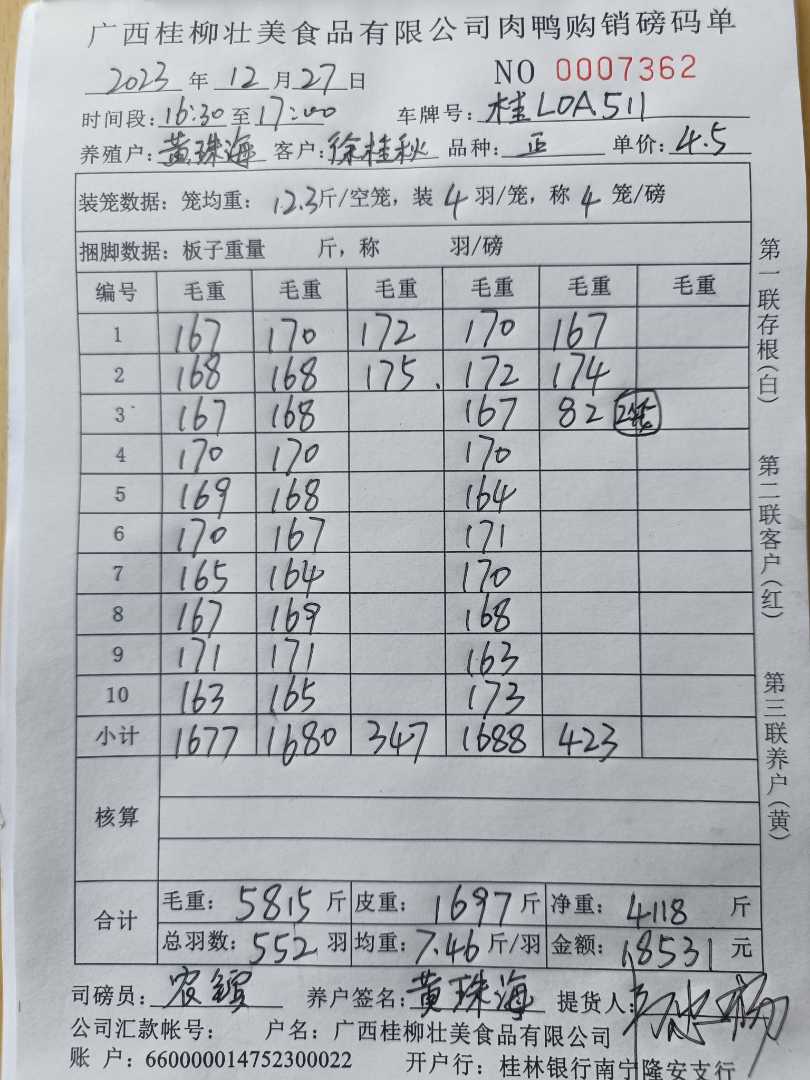 广西桂柳壮美食品有限公司肉鸭购销磅码单
2023 年 12 月 27 日 NO 0007362
时间段: 16:30 至 17:00 车牌号: 桂L0A511
养殖户: 黄珠海 客户: 徐桂秋 品种: 正 单价: 4.5
装笼数据: 笼均重: 12.3 斤/空笼, 装 4 羽/笼, 称 4 笼/磅
捆脚数据: 板子重量 斤, 称 羽/磅
编号 毛重 毛重 毛重 毛重 毛重 毛重
1 167 170 172 170 167
2 168 168 175. 172 174
3 167 168 167 82 2笼
4 170 170 170
5 169 168 164
6 170 167 171
7 165 164 170
8 167 169 168
9 171 171 163
10 163 165 173
小计 1677 1680 347 1688 423
核算
合计 毛重: 5815 斤 皮重: 1697 斤 净重: 4118 斤
总羽数: 552 羽 均重: 7.46 斤/羽 金额: 18531 元
司磅员: 农镔 养户签名: 黄珠海 提货人:
公司汇款帐号: 户名: 广西桂柳壮美食品有限公司
账 户: 660000014752300022 开户行: 桂林银行南宁隆安支行
第一联存根(白) 第二联客户(红) 第三联养户(黄)